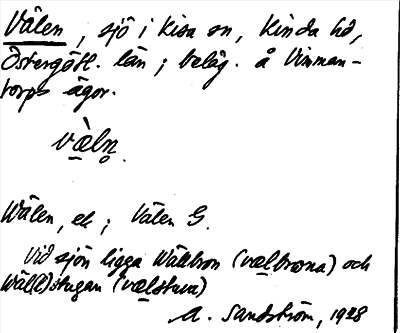 Välen, sjö i Kisa sn, Kinda hd,
Östergötl. län; beläg. å Vimman-
torps ägor.
væ̀ln̥.
Wälen, ek; Välen G.
Vid sjön ligga Wällbron (vælbrona) och
Wäl(l)stugan (vælstuva)
A. Sandström, 1928